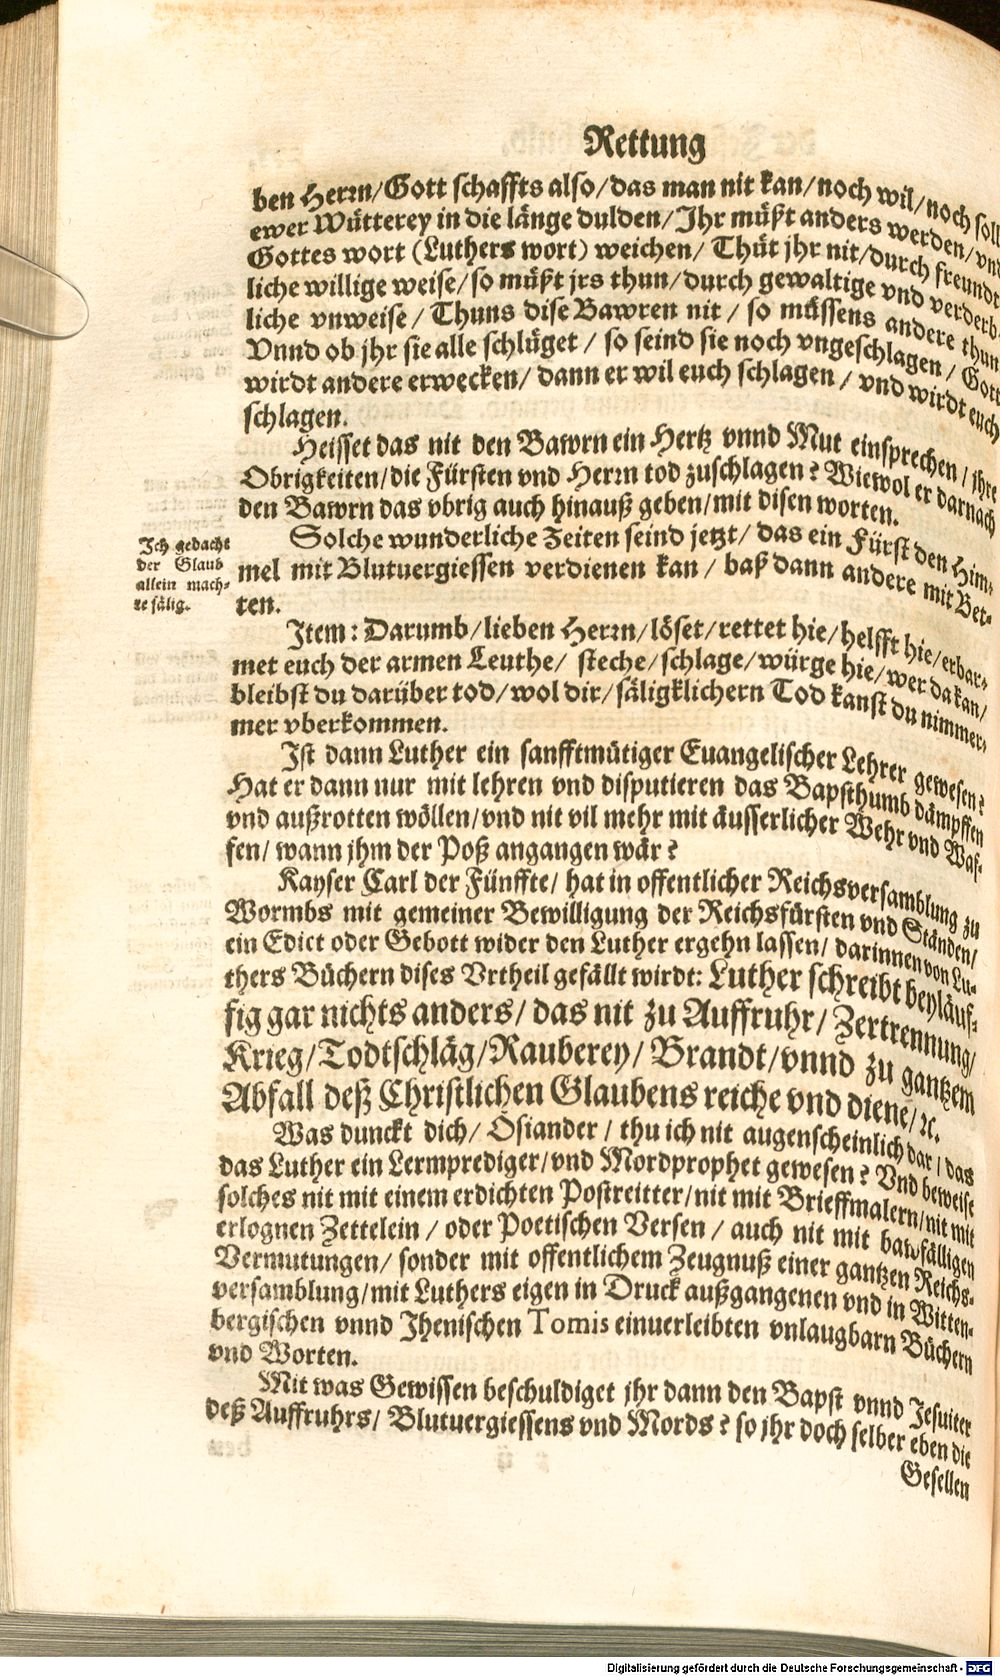 Rettung
ben Herrn/Gott schaffts also/das man nit kan/noch wil/noch soll
ewer Wütterey in die länge dulden/Jhr müßt anders werden/vnd
Gottes wort (Luthers wort) weichen/ Thüt jhr nit/durch freundt-
liche willige weise/so müßt jrs thun/durch gewaltige vnd verderb-
liche vnweise/ Thuns dise Bawren nit/ so müssens andere thun
Vnnd ob jhr sie alle schlüget/ so seind sie noch vngeschlagen/ Gott
wirdt andere erwecken/ dann er wil euch schlagen/ vnd wirdt euch
schlagen.
Heisset das nit den Bawrn ein Hertz vnnd Mut einsprechen/ jhre
Obrigkeiten/die Fürsten vnd Herrn tod zuschlagen? Wiewol er darnach
den Bawrn das vbrig auch hinauß geben/mit disen worten.
Solche wunderliche Zeiten seind jetzt/ das ein Fürst den Him-
mel mit Blutuergiessen verdienen kan/ baß dann andere mit Bet-
ten.
Jch gedacht
der Glaub
allein mach-
te sälig.
Jtem: Darumb/lieben Herrn/löset/rettet hie/helfft hie/erbar-
met euch der armen Leuthe/ steche/schlage/würge hie/wer da kan/
bleibst du darüber tod/wol dir/säligklichern Tod kanst du nimmer-
mer vberkommen.
Jst dann Luther ein sanfftmütiger Euangelischer Lehrer gewesen?
Hat er dann nur mit lehren vnd disputieren das Bapsthumb dämpffen
vnd außrotten wöllen/vnd nit vil mehr mit äusserlicher Wehr vnd Waf-
fen/ wann jhm der Poß angangen wär?
Kayser Carl der Fünffte/ hat in offentlicher Reichsversamblung zu
Wormbs mit gemeiner Bewilligung der Reichsfürsten vnd Ständen/
ein Edict oder Gebott wider den Luther ergehn lassen/ darinnen von Lu-
thers Büchern dises Vrtheil gefällt wirdt: Luther schreibt beyläuf-
fig gar nichts anders/ das nit zu Auffruhr/ Zertrennung/
Krieg/Todtschläg/Rauberey/ Brandt/vnnd zu gantzem
Abfall deß Christlichen Glaubens reiche vnd diene/ꝛc.
Was dunckt dich/ Osiander/ thu ich nit augenscheinlich dar/ das
das Luther ein Lermprediger/vnd Mordprophet gewesen? Vnd beweise
solches nit mit einem erdichten Postreitter/nit mit Brieffmalern/nit mit
erlognen Zettelein/ oder Poetischen Versen/ auch nit mit bawfälligen
Vermutungen/ sonder mit offentlichem Zeugnuß einer gantzen Reichs-
versamblung/mit Luthers eigen in Druck außgangenen vnd in Witten-
bergischen vnnd Jhenischen Tomis einuerleibten vnlaugbarn Büchern
vnd Worten.
Mit was Gewissen beschuldiget jhr dann den Bapst vnnd Jesuiter
deß Auffruhrs/ Blutuergiessens vnd Mords? so jhr doch selber eben die
Gesellen
Digitalisierung gefördert durch die Deutsche Forschungsgemeinschaft - DFG